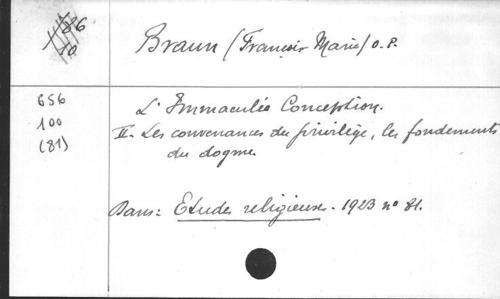 Braun (François Marie) O.P.
656
100
(81)
L'Immaculée Conception.
II. Les convenances du privilège, les fondements
du dogme.
Dans: Etudes religieuses. 1923 n° 81.